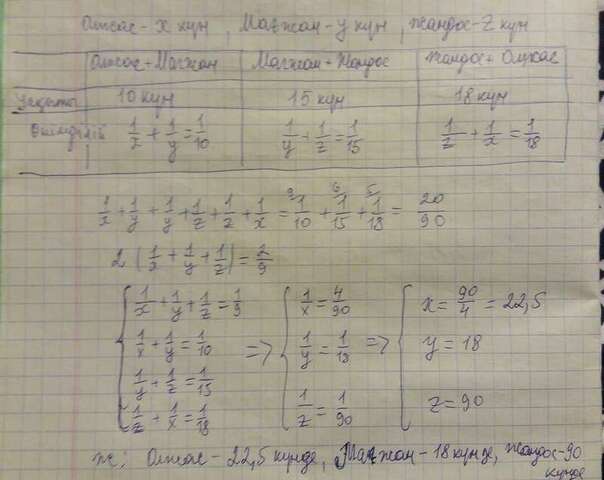 Олжас - x күн, Мағжан - y күн, Жандос - z күн
Олжас + Мағжан Мағжан + Жандос Жандос + Олжас
уақыты 10 күн 15 күн 18 күн
Өнімділігі 1/x + 1/y = 1/10 1/y + 1/z = 1/15 1/z + 1/x = 1/18
1/x + 1/y + 1/y + 1/z + 1/z + 1/x = 9 1/10 + 6 1/15 + 5 1/18 = 20/90
2 (1/x + 1/y + 1/z) = 2/9
1/x + 1/y + 1/z = 1/9 1/x = 4/90 x = 90/4 = 22,5
1/x + 1/y = 1/10 => 1/y = 1/18 => y = 18
1/y + 1/z = 1/15
1/z + 1/x = 1/18 1/z = 1/90 z = 90
ж: Олжас - 22,5 күнде, Мағжан - 18 күнде, Жандос - 90
күнде